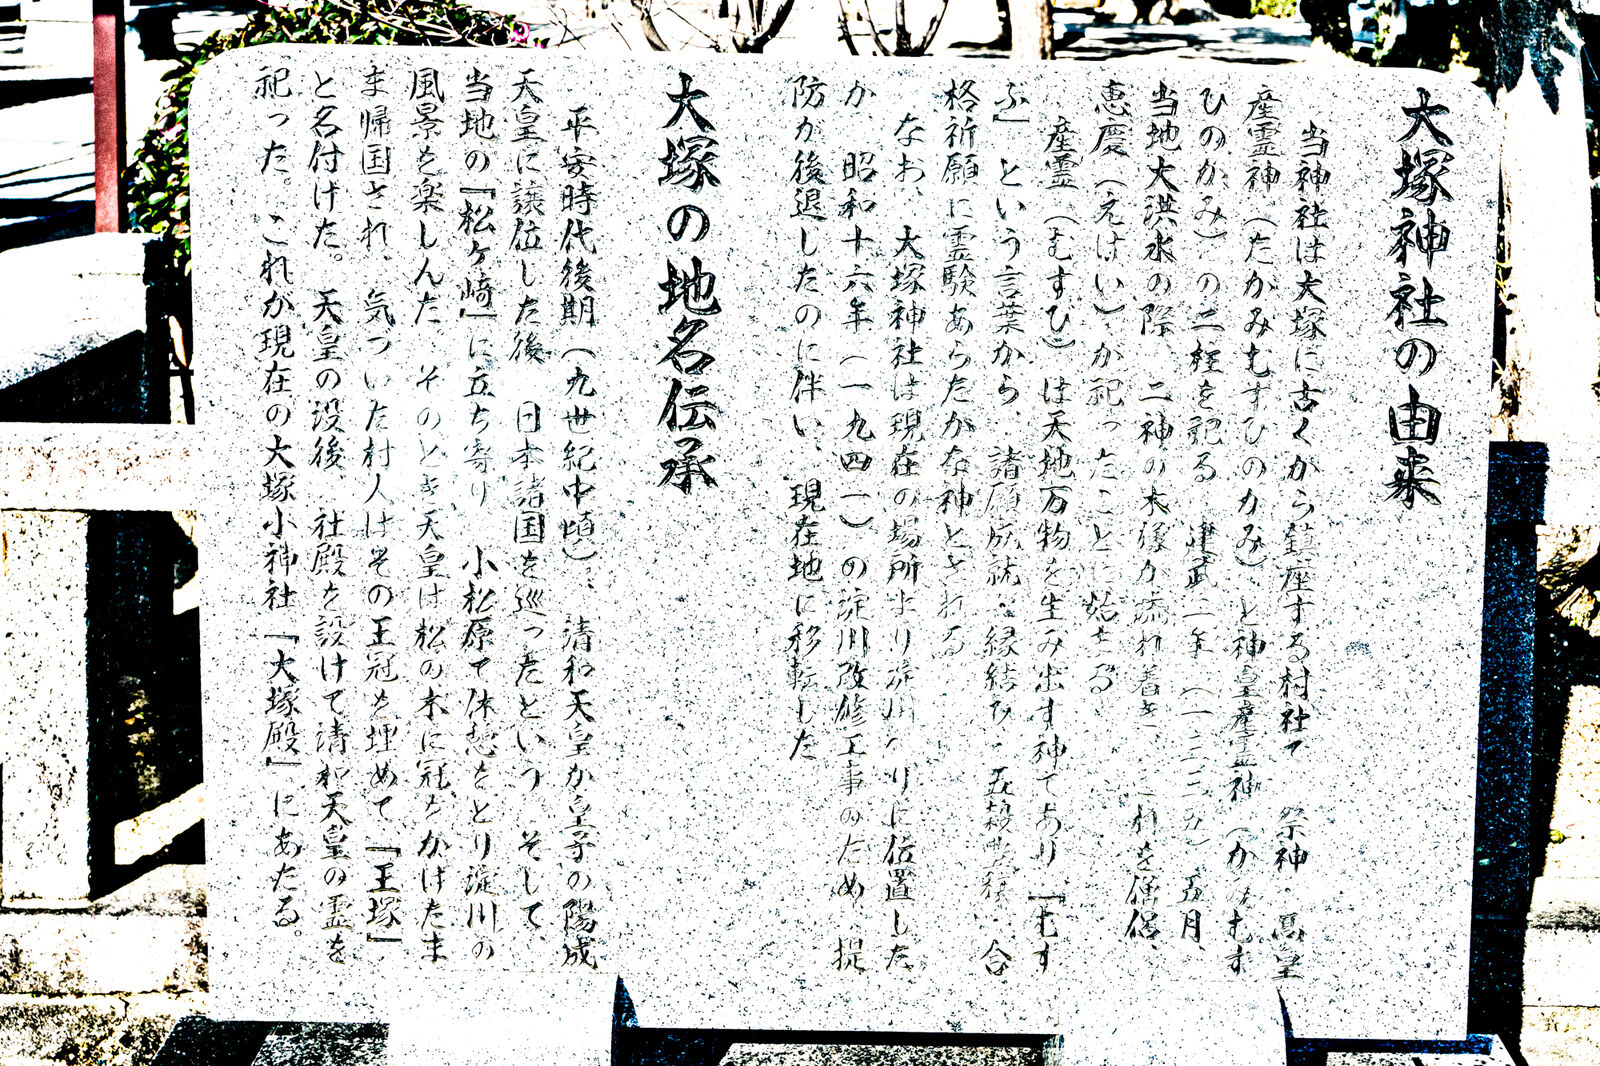 大塚神社の由来
当神社は大塚に古くから鎮座する村社で 祭神・高皇
産霊神（たかみむすひのかみ）と神皇産霊神（かみむす
ひのかみ）の二柱を祀る 建武二年（一三三五）五月、
当地大洪水の際 二神の木像が流れ着き、これを僧侶、
恵慶（えけい）が祀ったことに始まる
産霊（むすひ）は天地万物を生み出す神であり「むす
ぶ」という言葉から 諸願成就・縁結び・五穀豊穣・合
格祈願に霊験あらたかな神とされる
なお、大塚神社は現在の場所より淀川べりに位置した
が、昭和十六年（一九四一）の淀川改修工事のため、堤
防が後退したのに伴い、現在地に移転した
大塚の地名伝承
平安時代後期（九世紀中頃）、清和天皇が皇子の陽成
天皇に譲位した後 日本諸国を巡ったという そして、
当地の『松ヶ崎』に立ち寄り 小松原で休憩をとり淀川の
風景を楽しんだ そのとき天皇は松の木に冠をかけたま
ま帰国され、気づいた村人はその王冠を埋めて『王塚』
と名付けた。天皇の没後、社殿を設けて清和天皇の霊を
祀った。これが現在の大塚小神社『大塚殿』にあたる。